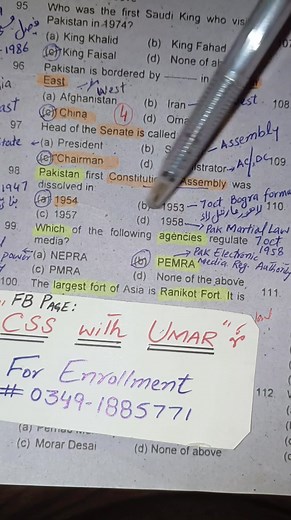 95 Who was the first Saudi King who vis
Pakistan in 1974?
(a) King Khalid (b) King Fahad
(c) King Faisal (d) None of a
1986
96 Pakistan is bordered by ____ in
East West
(a) Afghanistan (b) Iran
(c) China 4 (d) Oma
108
97 Head of the Senate is called
Assembly
(a) President (b) S
(c) Chairman (d) istrator AC, DC 109
98 Pakistan first Constitu Assembly was
dissolved in
1947
(a) 1954 (b) 1953 7oct Bogra Formu 110
(c) 1957 (d) 1958 Pak Martial Law
7oct 1958
99 Which of the following agencies regulate
media?
Pak Electronic
Media Reg. Authority
power (a) NEPRA (b) PEMRA
(c) PMRA (d) None of the above
100. The largest fort of Asia is Ranikot Fort. It is 111
" FB PAGE:
CSS with UMAR"
For Enrollment
# 0349-1885771
112
(c) Morar Desai (d) None of above